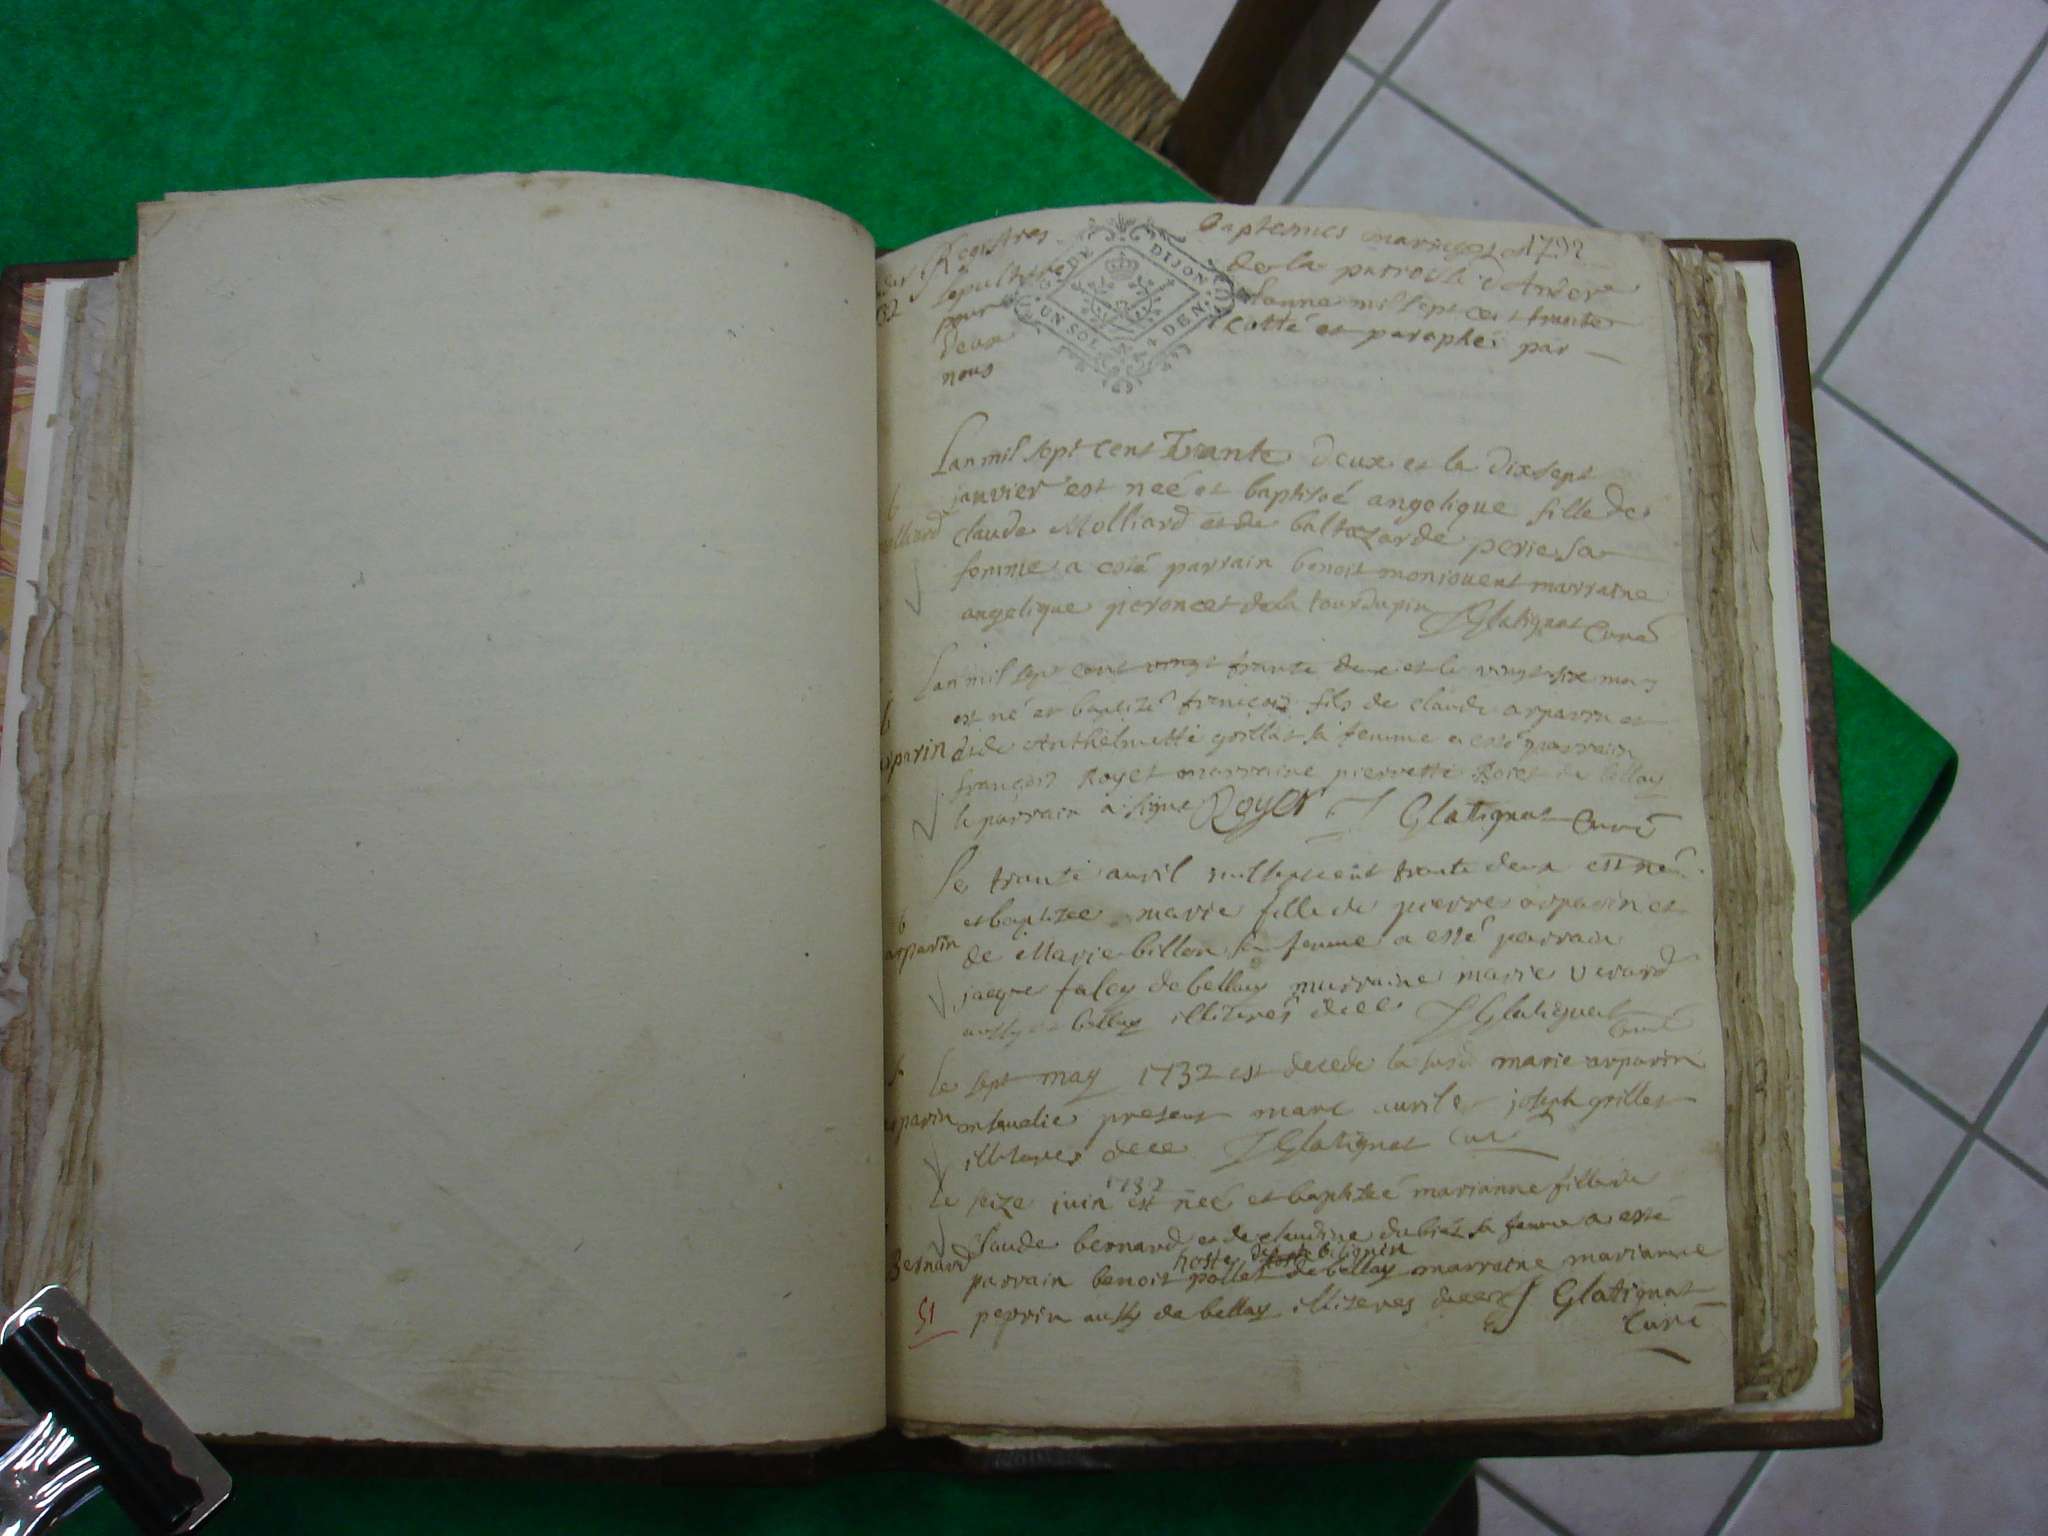 Registres baptemes mariages et 1732
sepulture de la parroisse d'Ander
pour lannee mil sept cent trante
deux cotté et paraphé par
nous
DE DIJON
UN SOL 4 DEN.
Lan mil sept cent Trante deux et le dixsept
janvier est neé et baptisoé angelique fille de
b
molliard
claude Molliard et de baltazarde perier sa
femme a esté parrain benoit moniouent marraine
angelique peroncet de la tourdupin J Glatignat Curé
Lan mil sept cent vingt trante deux et le vingt six may
b
est né et baptizé francois fils de claude arparin et
arparin
de Anthelmette grillat sa femme a esté parrain
françois Royet marraine pierrette Roiet de bellay
le parrain a signe Royer J Glatignat Curé
Le trante auril mil sept cent trante deux est neé
b
arparin
et baptizee marie fille de pierre arparin et
de Marie billon sa femme a esté parrain
jacque faley de bellay marraine marie verard
aussy de bellay illiteres J Glatignat
Curé
Le sept may 1732 est decede la susd marie arparin
s
arparin
ensevelie present marc auril et joseph grillet
illiteres J Glatignat Cure
Le seize juin 1732 est neé et baptizeé marianne fille de
Bernard
Claude bernard et de claudine dubiez sa femme a esté
hoste de bilignin
parrain benoit pollet de bellay marraine marianne
perrin aussy de bellay illiteres J Glatignat
Curé
51